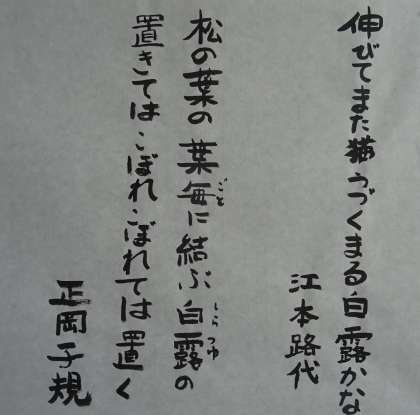 伸びてまた猫うづくまる白露かな
江本路代
松の葉の葉毎に結ぶ白露の
ごと
しらつゆ
置きてはこぼれこぼれては置く
正岡子規